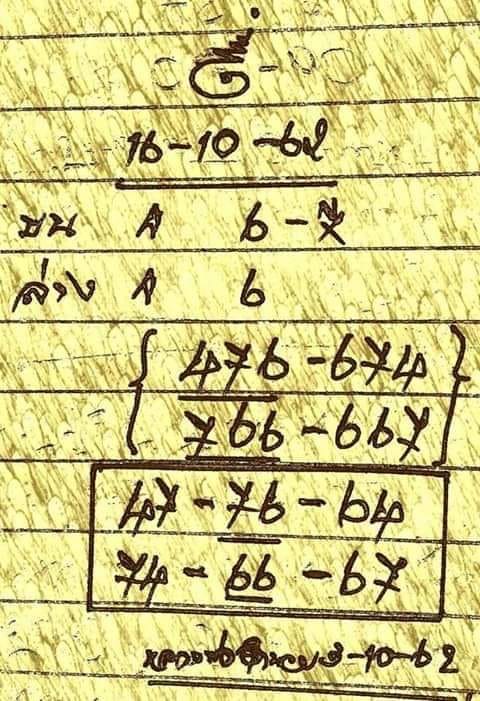 16-10-62
บน A 6-7
ล่าง A 6
476-674
766-667
47-76-64
74-66-67
3-10-62